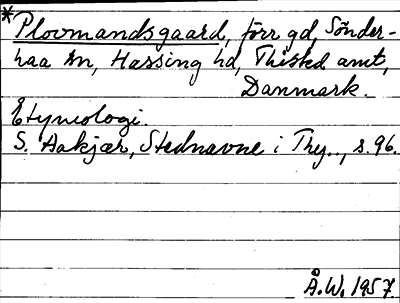 *Plovmandsgaard, förr gd, Sönder-
haa sn, Hassing hd, Thisted amt,
Danmark.
Etymologi.
S. Aakjær, Stednavne i Thy.., s. 96.
Å.W. 1957.